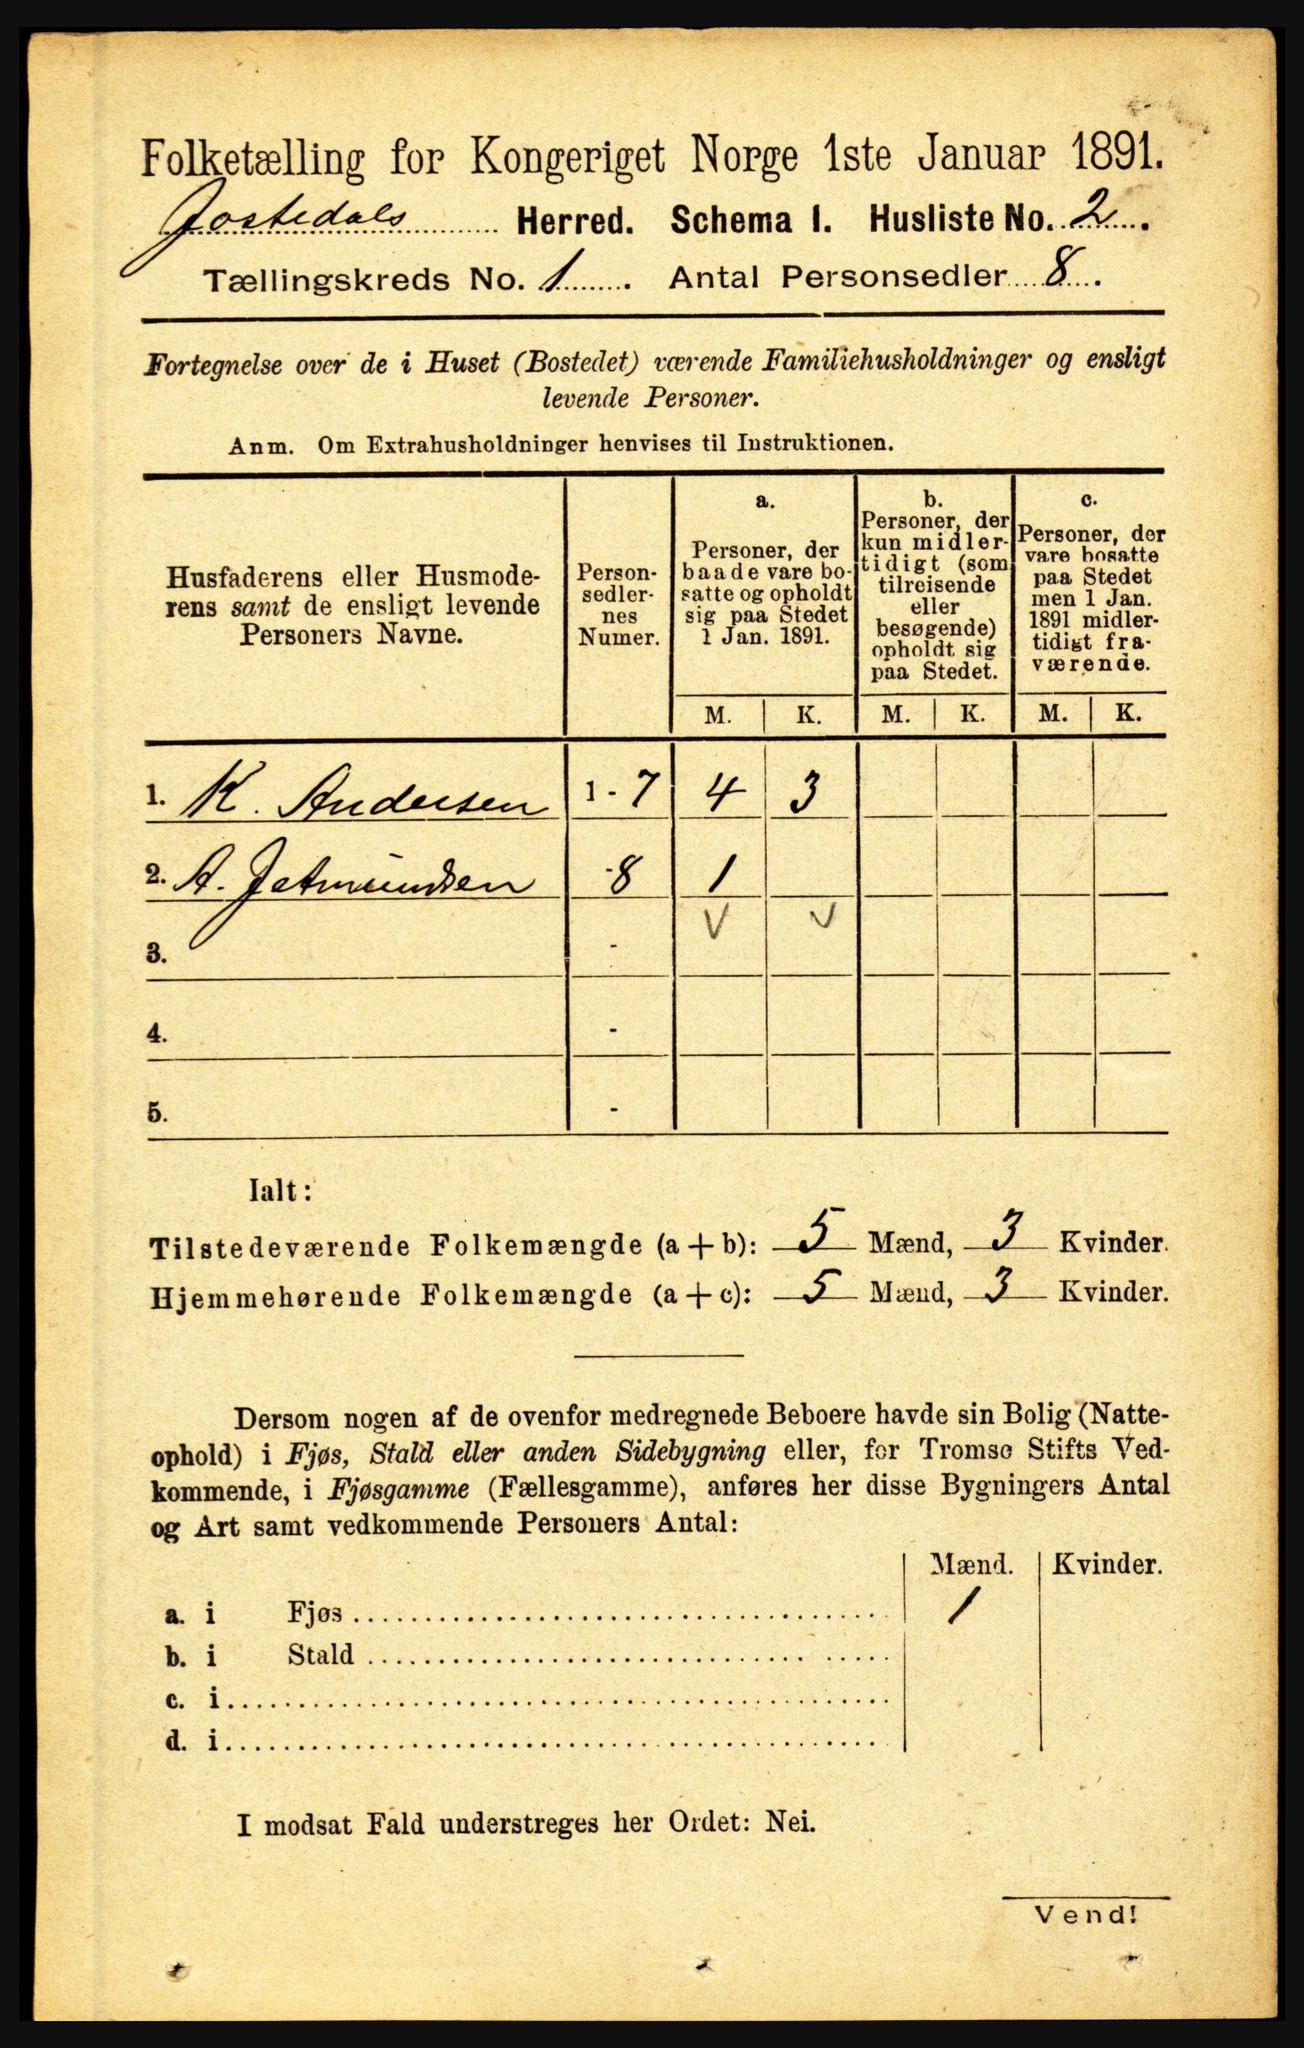 Folketælling for Kongeriget Norge 1ste Januar 1891.
Jostedals Herred. Schema I. Husliste No. 2.
Tællingskreds No. 1. Antal Personsedler 8.
Fortegnelse over de i Huset (Bostedet) værende Familiehusholdninger og ensligt
levende Personer.
Anm. Om Extrahusholdninger henvises til Instruktionen.
Husfaderens eller Husmode-
rens samt de ensligt levende
Personers Navne.
Person-
sedler-
nes
Numer.
a.
Personer, der
baade vare bo-
satte og opholdt
sig paa Stedet
1 Jan. 1891.
b.
Personer, der
kun midler-
tidigt (som
tilreisende
eller
besøgende)
opholdt sig
paa Stedet.
c.
Personer, der
vare bosatte
paa Stedet
men 1 Jan.
1891 midler-
tidigt fra-
værende.
M. K. M. K. M. K.
1. K. Andersen 1-7 4 3
2. A. Jetmundsen -8 1
3. -
4. -
5. -
Ialt:
Tilstedeværende Folkemængde (a+b): 5 Mænd, 3 Kvinder.
Hjemmehørende Folkemængde (a+c): 5 Mænd, 3 Kvinder.
Dersom nogen af de ovenfor medregnede Beboere havde sin Bolig (Natte-
ophold) i Fjøs, Stald eller anden Sidebygning eller, for Tromsø Stifts Ved-
kommende, i Fjøsgamme (Fællesgamme), anføres her disse Bygningers Antal
og Art samt vedkommende Personers Antal:
Mænd. Kvinder.
a. i Fjøs 1
b. i Stald
c. i
d. i
I modsat Fald understreges her Ordet: Nei.
Vend!